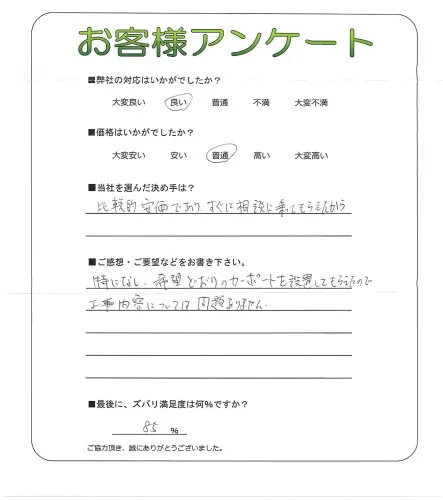 お客様アンケート
■弊社の対応はいかがでしたか？
大変良い 良い 普通 不満 大変不満
■価格はいかがでしたか？
大変安い 安い 普通 高い 大変高い
■当社を選んだ決め手は？
比較的安価であり、すぐに相談に乗ってもらえたから
■ご感想・ご要望などをお書き下さい。
特になし、希望どおりのカーポートを設置してもらえたので
工事内容については問題ありません。
■最後に、ズバリ満足度は何%ですか？
85 %
ご協力頂き、誠にありがとうございました。